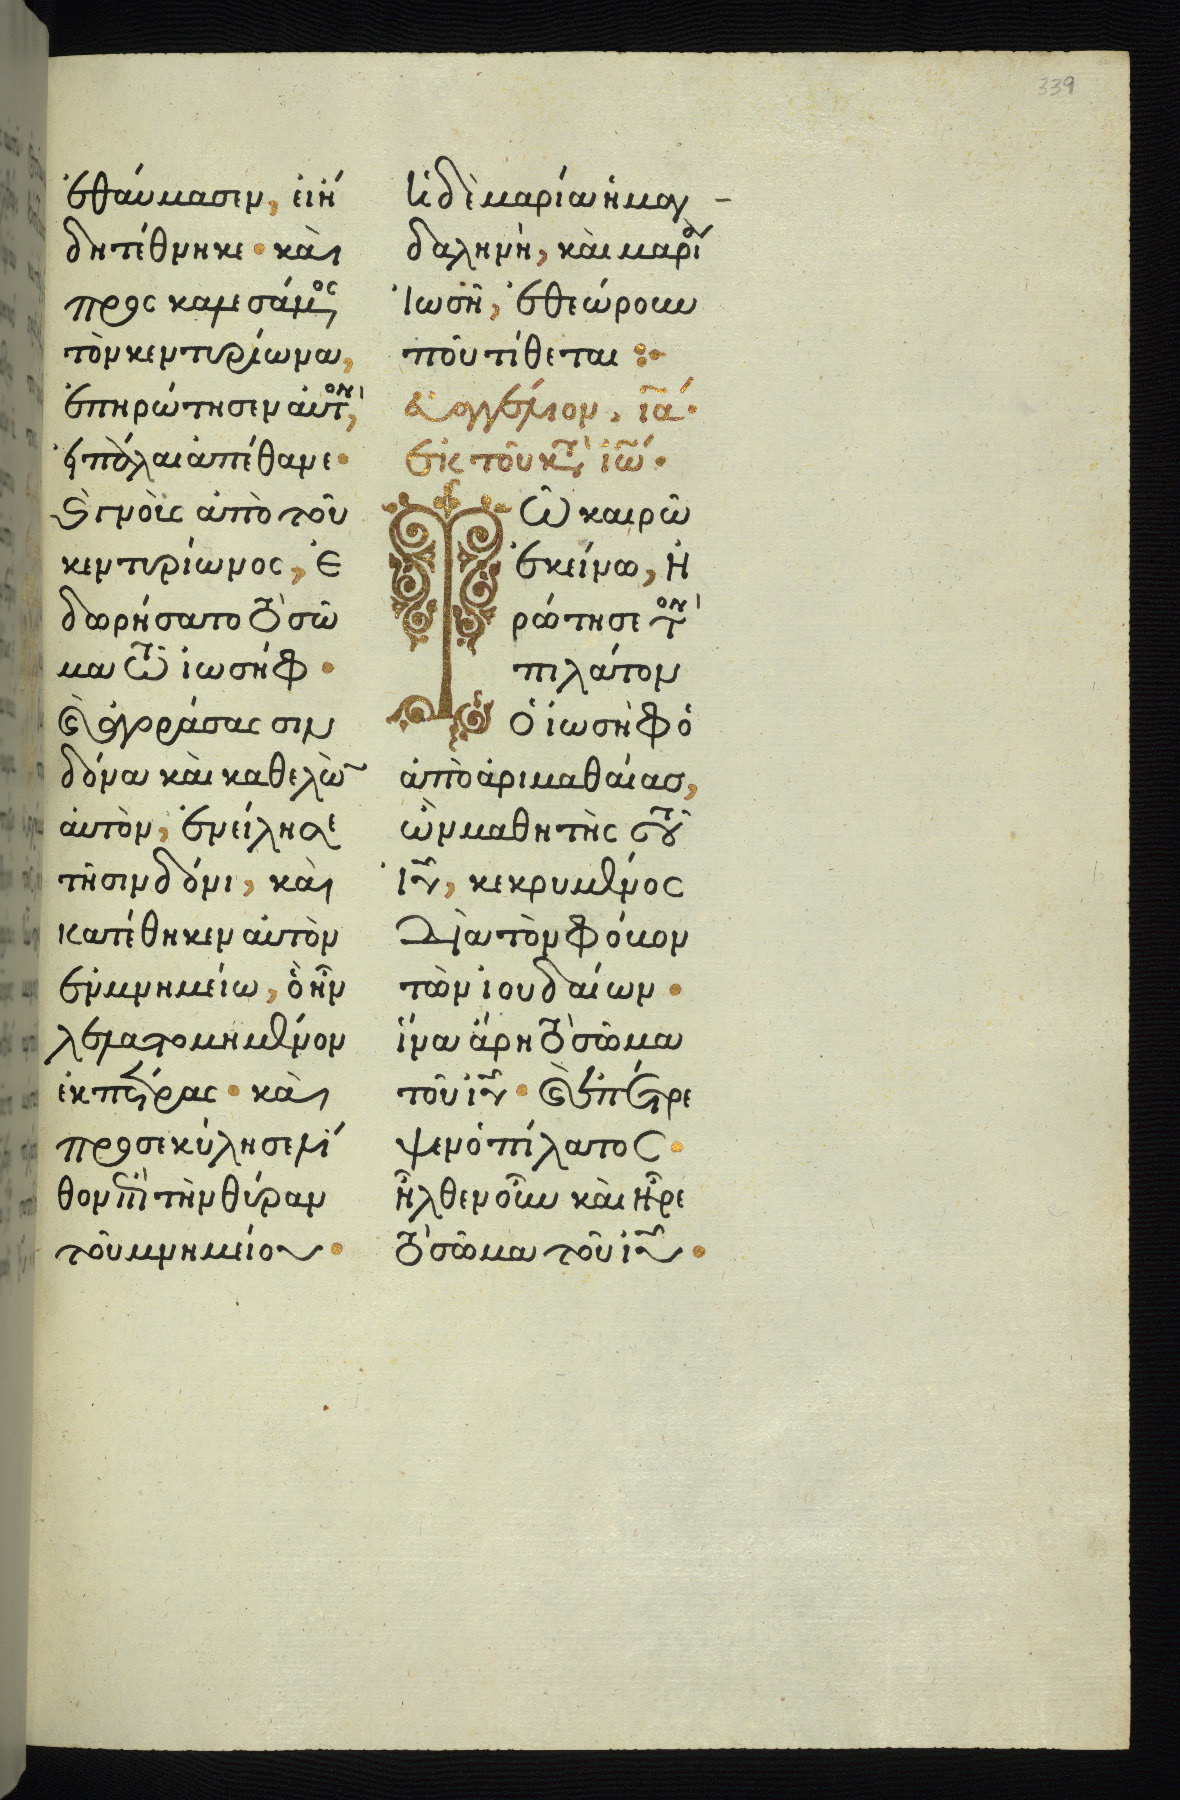 339
ἐθαύμασεν, εἰ ἤ
δη τέθνηκε· καὶ
προσκαλεσάμενος
τὸν κεντυρίωνα,
ἐπηρώτησεν αὐτὸν,
εἰ πάλαι ἀπέθανε·
καὶ γνοὺς ἀπὸ τοῦ
κεντυρίωνος, ἐ
δωρήσατο τὸ σῶ
μα τῶ ἰωσήφ·
καὶ ἀγοράσας σιν
δόνα καὶ καθελὼν
αὐτὸν, ἐνείλησε
τῆ σινδόνι, καὶ
κατέθηκεν αὐτὸν
ἐν μνημείω, ὃ ἦν
λελατομημένον
ἐκ πέτρας· καὶ
προσεκύλησε λί
θον ἐπὶ τὴν θύραν
τοῦ μνημείου·
ἡ δὲ μαρία ἡ μαγ
δαληνὴ, καὶ μαρία
Ἰωσῆ, ἐθεώρουν
ποῦ τίθεται:
εὐαγγέλιον, ια·
ἐκ τοῦ κατὰ ἰω·
Τῶ καιρῶ
ἐκείνω, ἠ
ρώτησε τὸν
πιλάτον
ὁ ἰωσὴφ ὁ
ἀπὸ ἀριμαθαίας,
ὢν μαθητὴς τοῦ
ἰυ, κεκρυμμένος
διὰ τὸν φόβον
τῶν ἰουδαίων·
ἵνα ἄρη τὸ σῶμα
τοῦ ἰυ· καὶ ἐπέτρε
ψεν ὁ πίλατος·
ἦλθεν οὖν καὶ ἦρε
τὸ σῶμα τοῦ ἰυ·